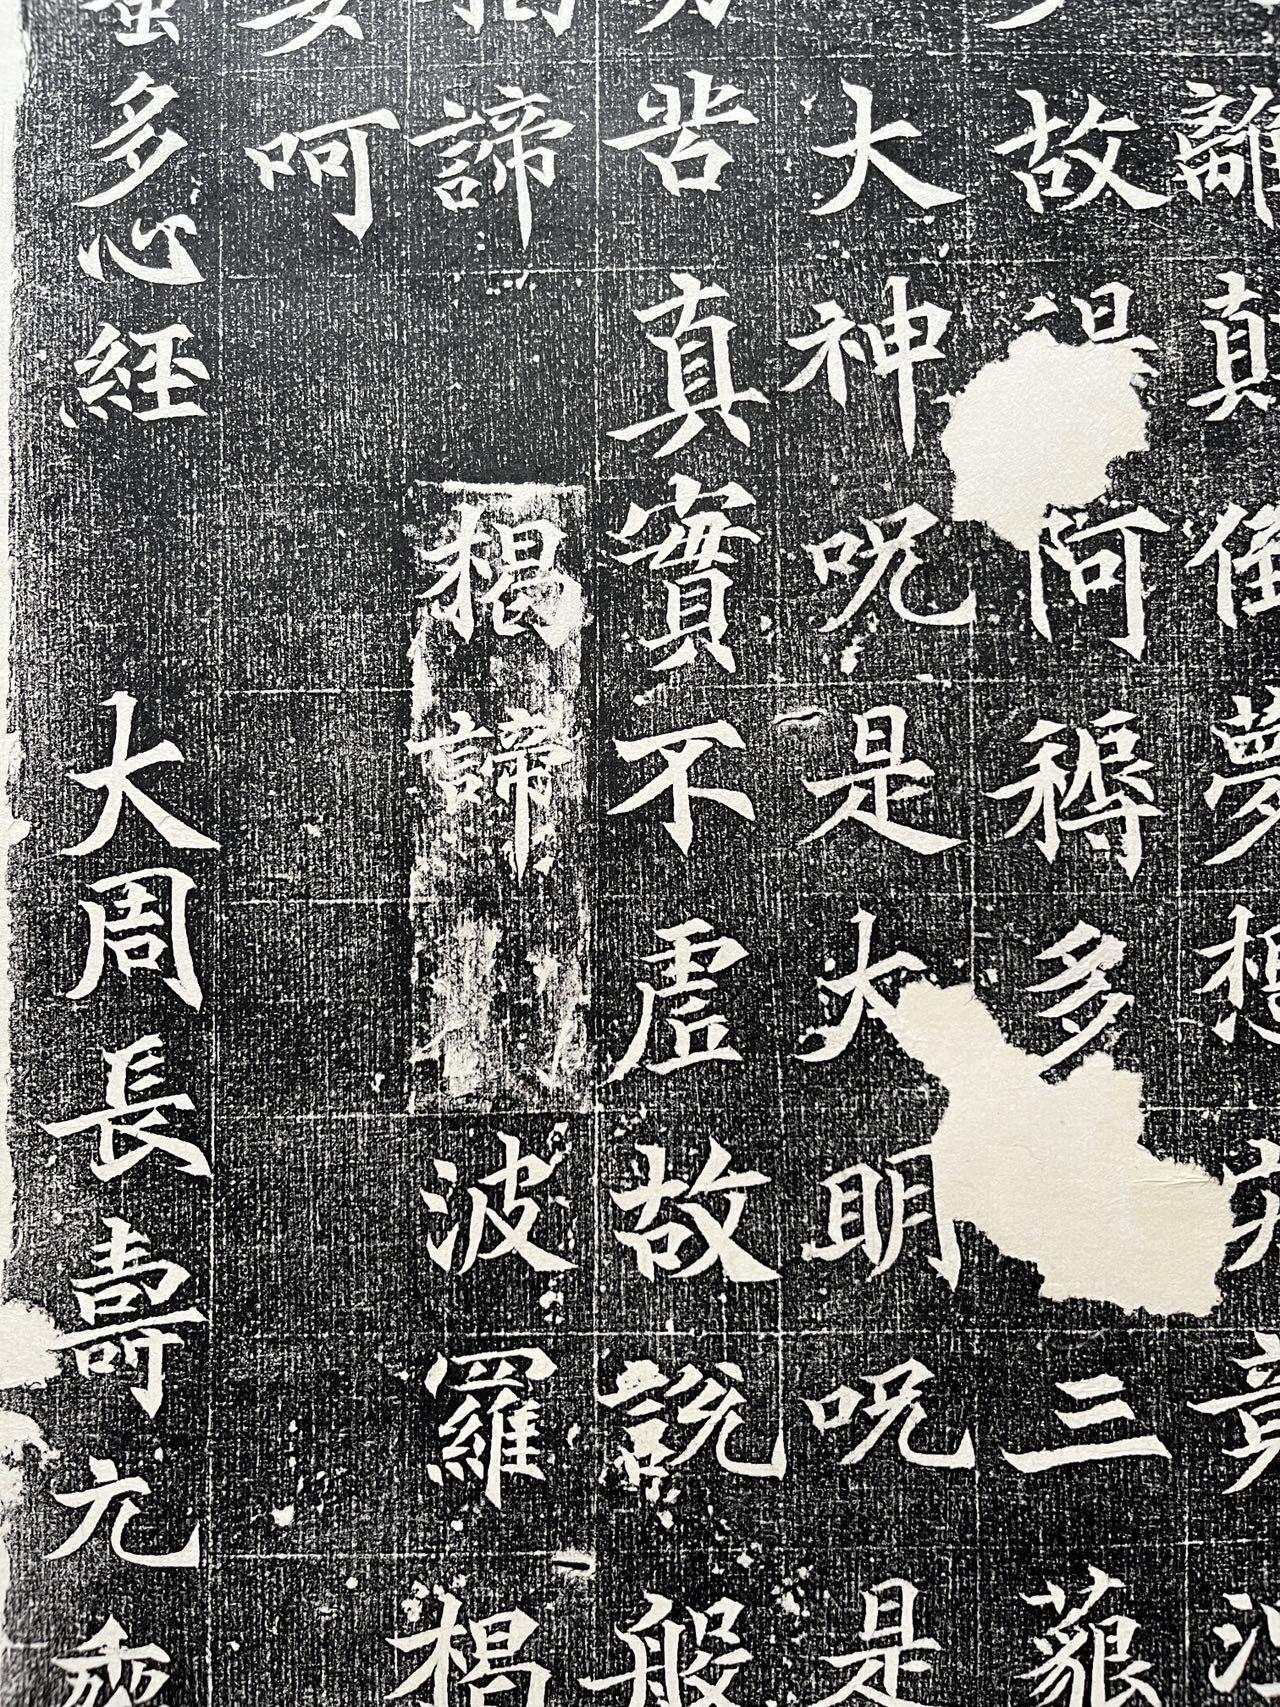 離顛倒夢想竟涅
故得阿耨多三藐
大神呪是大明呪是
苦真實不虛故說般
諦揭諦波羅揭
婆呵
蜜多心經 大周長壽元